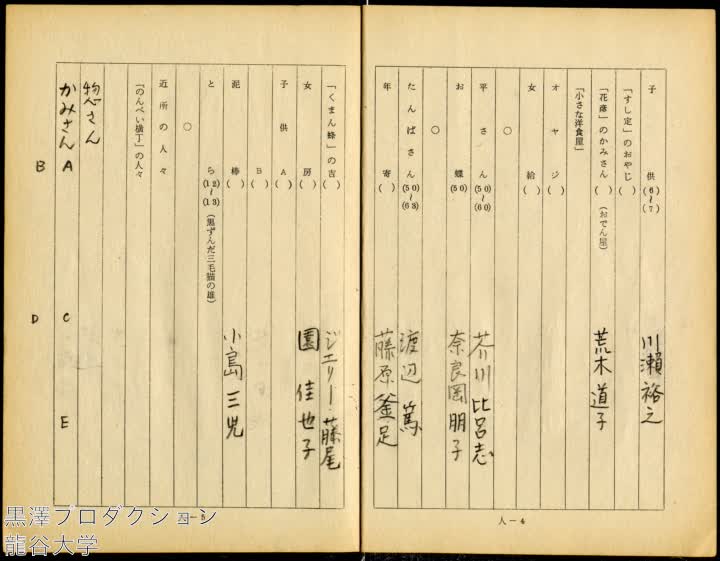 子供(6〜7) 川瀬裕之
「すし定」のおやじ( )
「花彦」のかみさん( )(おでん屋) 荒木道子
「小さな洋食屋」
オヤジ( )
女給( )
○
平さん(50〜60) 芥川比呂志
お蝶(50) 奈良岡朋子
○
たんばさん(50〜63) 渡辺篤
年寄( ) 藤原釜足
人—4
「くまん蜂」の吉( ) ジェリー・藤尾
女房( ) 園佳也子
子供A( )
B( )
泥棒( ) 小島三児
とら(12〜13)(黒ずんだ三毛猫の雄)
○
近所の人々
「のんべい横丁」の人々
惣さん
かみさんA C E
B D
人—5
黒澤プロダクション
龍谷大学